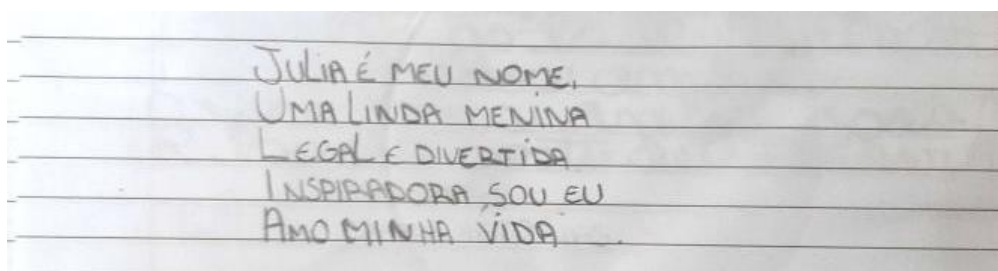 JULIA É MEU NOME,
UMA LINDA MENINA
LEGAL E DIVERTIDA
INSPIRADORA SOU EU
AMO MINHA VIDA.